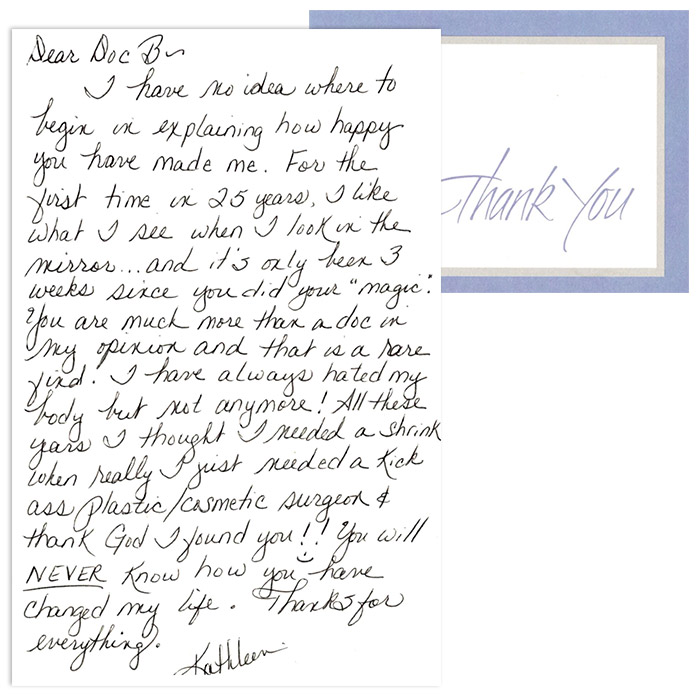 Dear Doc B~
I have no idea where to
begin in explaining how happy
you have made me. For the
first time in 25 years, I like
what I see when I look in the
mirror...and it's only been 3
weeks since you did your "magic".
You are much more than a doc in
my opinion and that is a rare
find. I have always hated my
body but not anymore! All these
years I thought I needed a shrink
when really I just needed a kick
ass plastic/cosmetic surgeon &
thank God I found you!! You will
NEVER know how you have
changed my life. Thanks for
everything.
Kathleen
Thank You